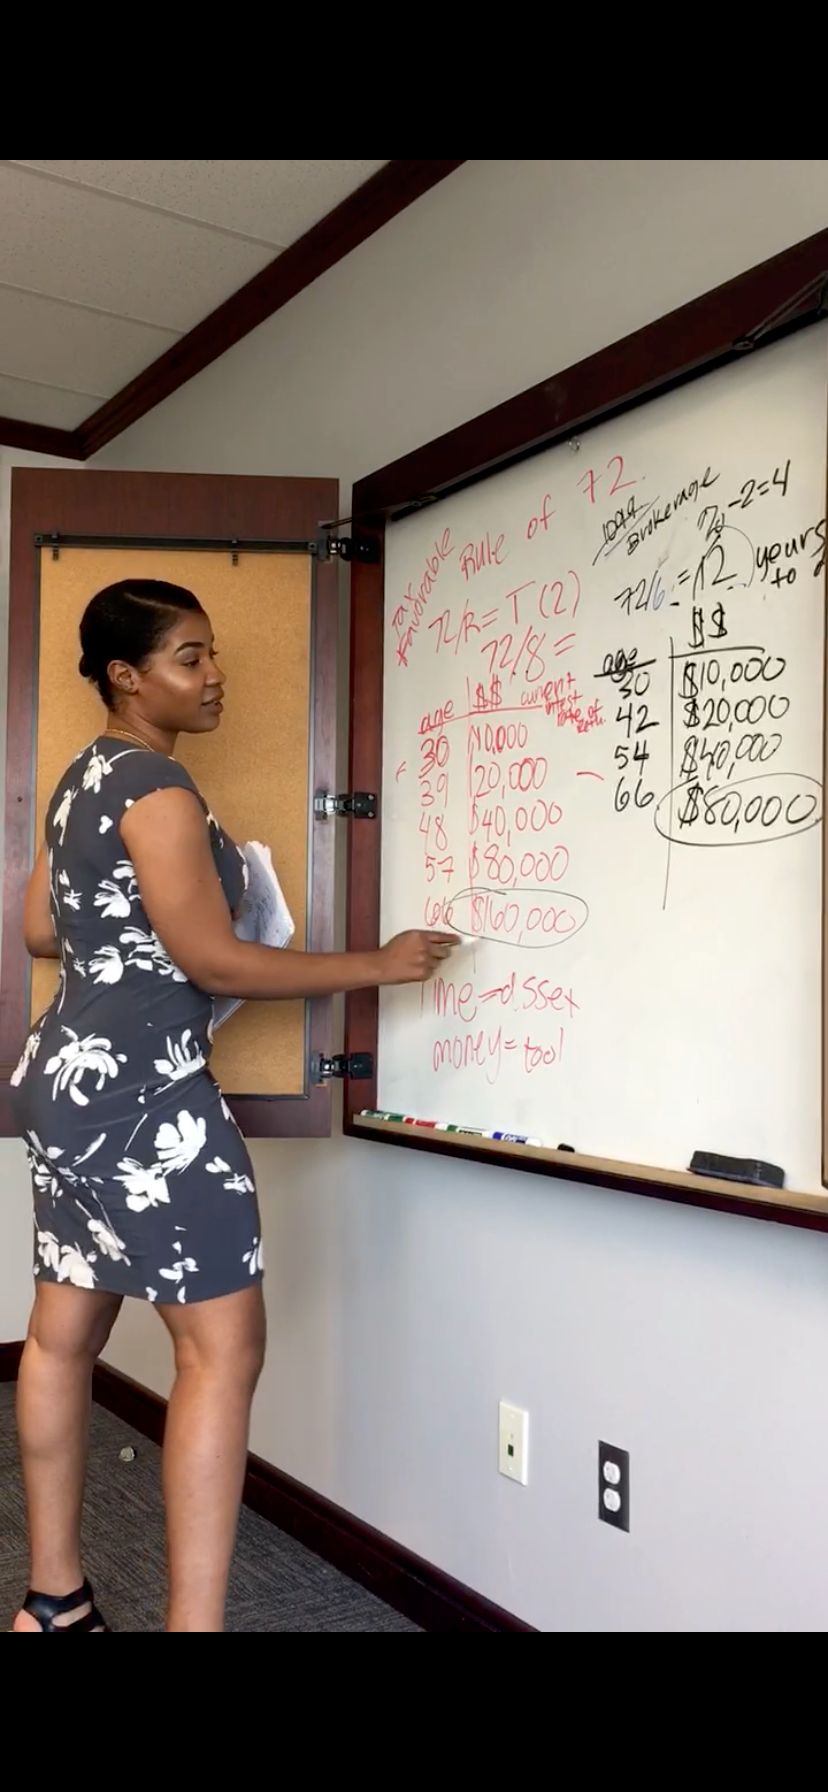 Rule of 72
Tax
favorable
72/R = T (2)
72/8 =
age $$ current
rate of
30 10,000
39 20,000
48 $40,000
57 $80,000
66 $160,000
Time = asset
money = tool
1099
Brokerage
-2=4
72/6 = 12 years
to
$$
age
30 $10,000
42 $20,000
54 $40,000
66 $80,000